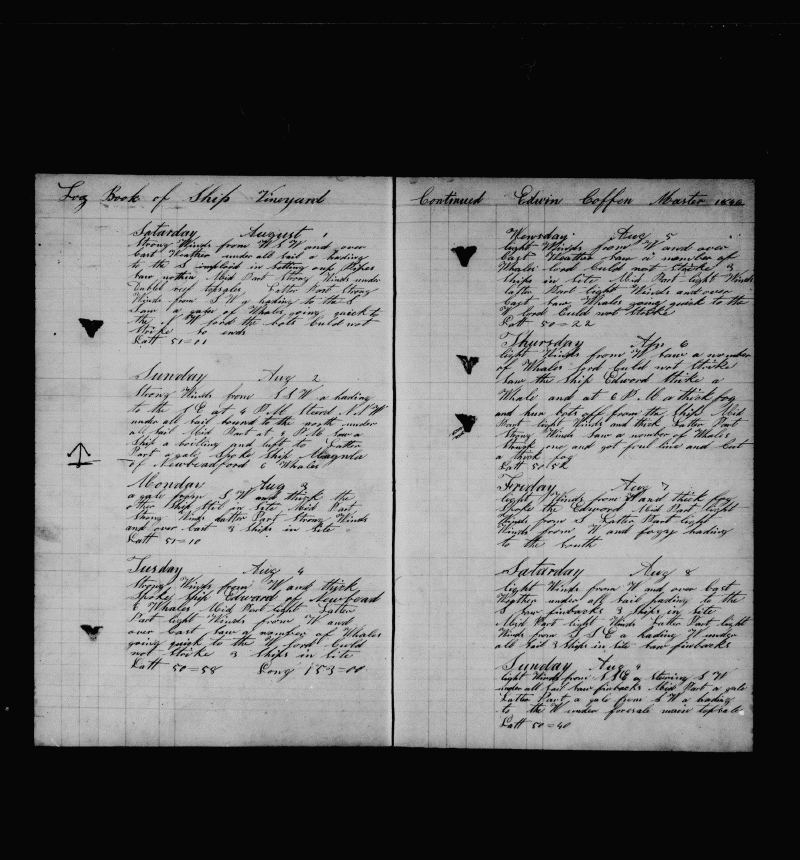 Log Book of Ship Vineyard
Saturday August 1
Strong Winds from W S W and over
Cast Weather under all sail a hading
to the S imploid in Cotting out Pipes
Saw nothin Mid Part Strong Winds under
Dubbel reef topsales Latter Part Strong
Winds from S W a hading to the S
Saw a of Whales going quick to
the W loed the bots Culd not
Strike So ends
Latt 51=11
Sunday Aug 2
Strong Winds from S S W a hading
to the S E at 4 P M N N W
under all sail bound to the north under
all sail Mid Part at P M Saw a
Ship a boiling and left to Latter
Part a gale Spoke Ship Magnola
of Newbeadford 6 Whales
Monday Aug 3
a gale from S W and thick the
other Ship Stil in Site Mid Part
Strong Winds Latter Part Strong Winds
and over Cast 3 Ships in Site
Latt 51=10
Tusday Aug 4
Strong Winds from W and thick
Spoke Ship Edward of Newbead
Whales Mid Part light Latter
Part light Winds from W and
over Cast Saw a number of Whales
going quick to the W Culd
not Strike 3 Ships in Site
Latt 50=58 Long 153=00
Continued Edwin Coffin Master
Wensday Aug 5
light Winds from W and over
Cast Weather Saw a number of
Whales loed Culd not Strike 3
Ships in Site Mid Part light Winds
Latter Part light Winds and over
Cast Saw Whales going quick to the
W loed Culd not Strike
Latt 50=22
Thursday 6
light Winds from W Saw a number
of Whales loed Culd not Strike
Saw the Ship Edword Strike a
Whale and at 6 P M a thick fog
and hur bots off from the Ship Mid
Part light Winds and thick Latter Part
Strong Winds Saw a number of Whales
Struck one and got foul line and Lost
a thick fog
Latt 50 52
Friday Aug 7
light Winds from W and thick fog
Spoke the Edword Mid Part light
Winds from S Latter Part light
Winds from W and fogy hading
to the South
Saturday Aug 8
light Winds from W and over Cast
Weather under all sail hading to the
S Saw finbacks 3 Ships in Site
Mid Part light Winds Latter Part light
Winds from S S E a hading W under
all sail 3 Ships in Site Saw finbacks
Sunday Aug 9
light Winds from S S E a Stering S W
under all sail Saw finbacks Mid Part a gale
Latter Part a gale from S W a hading
to the W under foresale main topsale
Latt 50=40